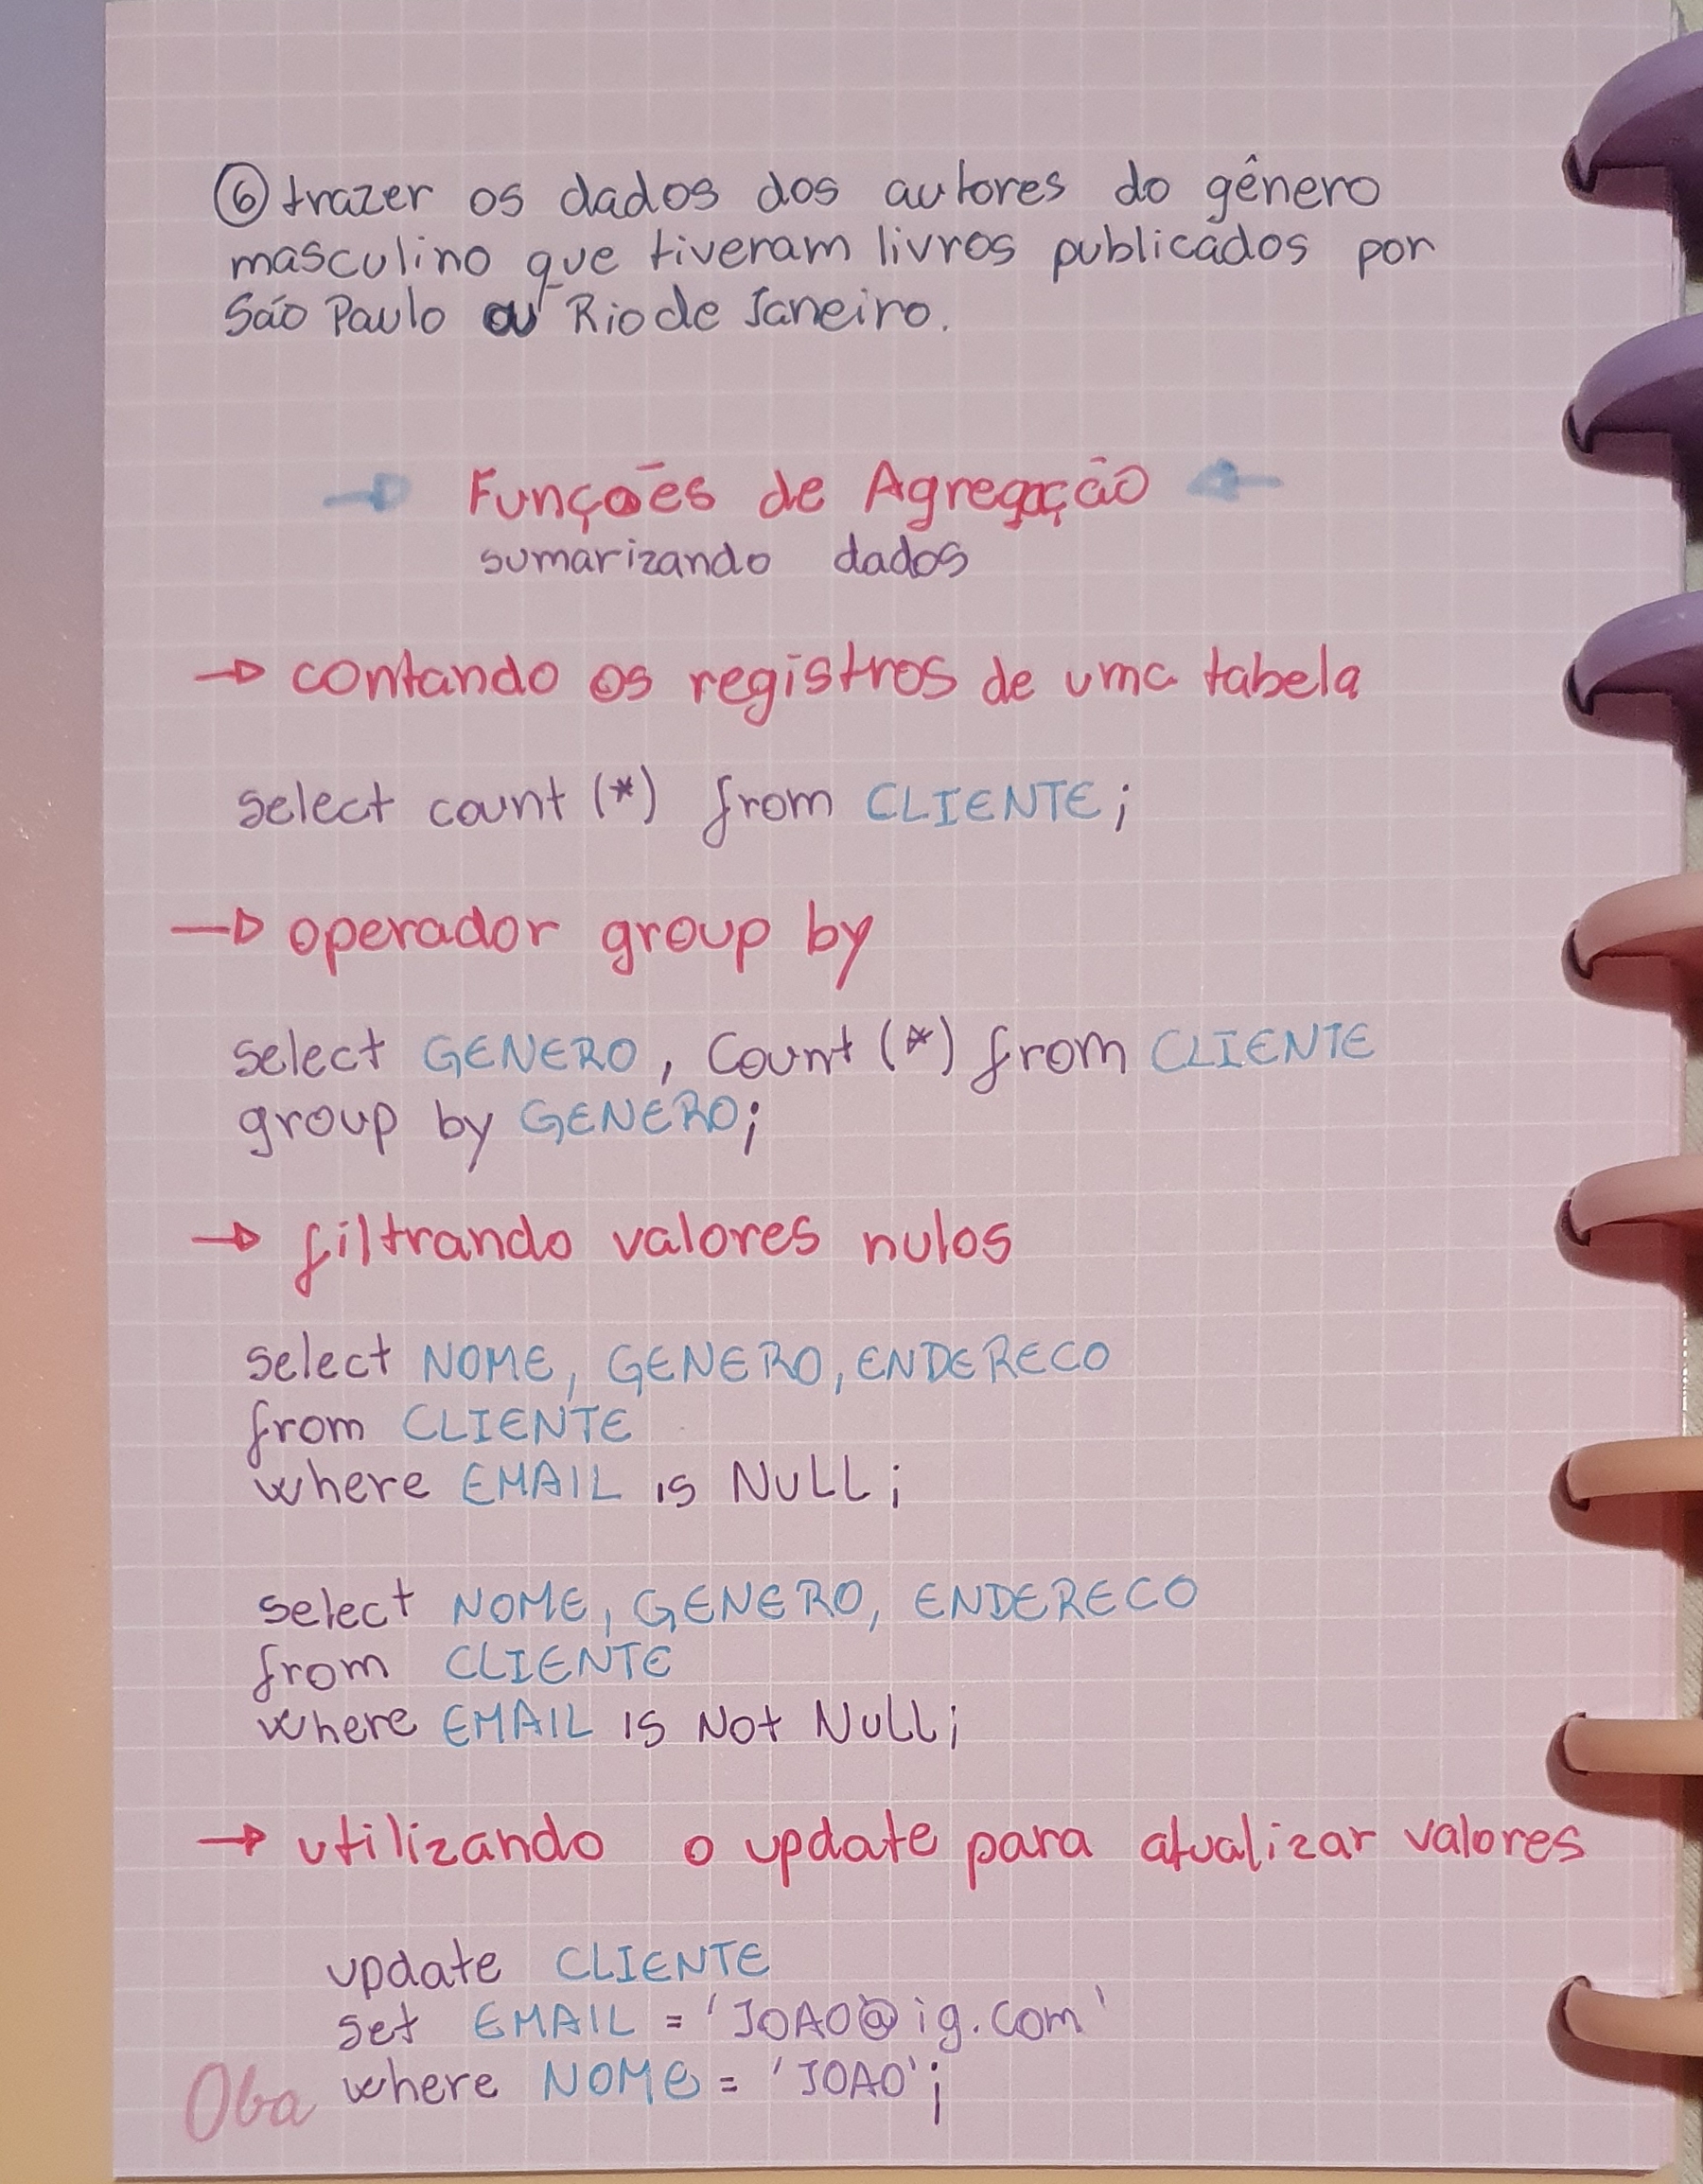 ⑥ trazer os dados dos autores do gênero
masculino que tiveram livros publicados por
São Paulo ou Rio de Janeiro.
Funções de Agregação
sumarizando dados
→ contando os registros de uma tabela
select count (*) from CLIENTE;
→ operador group by
select GENERO, Count (*) from CLIENTE
group by GENERO;
→ filtrando valores nulos
select NOME, GENERO, ENDERECO
from CLIENTE
where EMAIL is NULL;
select NOME, GENERO, ENDERECO
from CLIENTE
where EMAIL is Not NULL;
→ utilizando o update para atualizar valores
update CLIENTE
set EMAIL = 'JOAO@ig.com'
where NOME = 'JOAO';
Oba